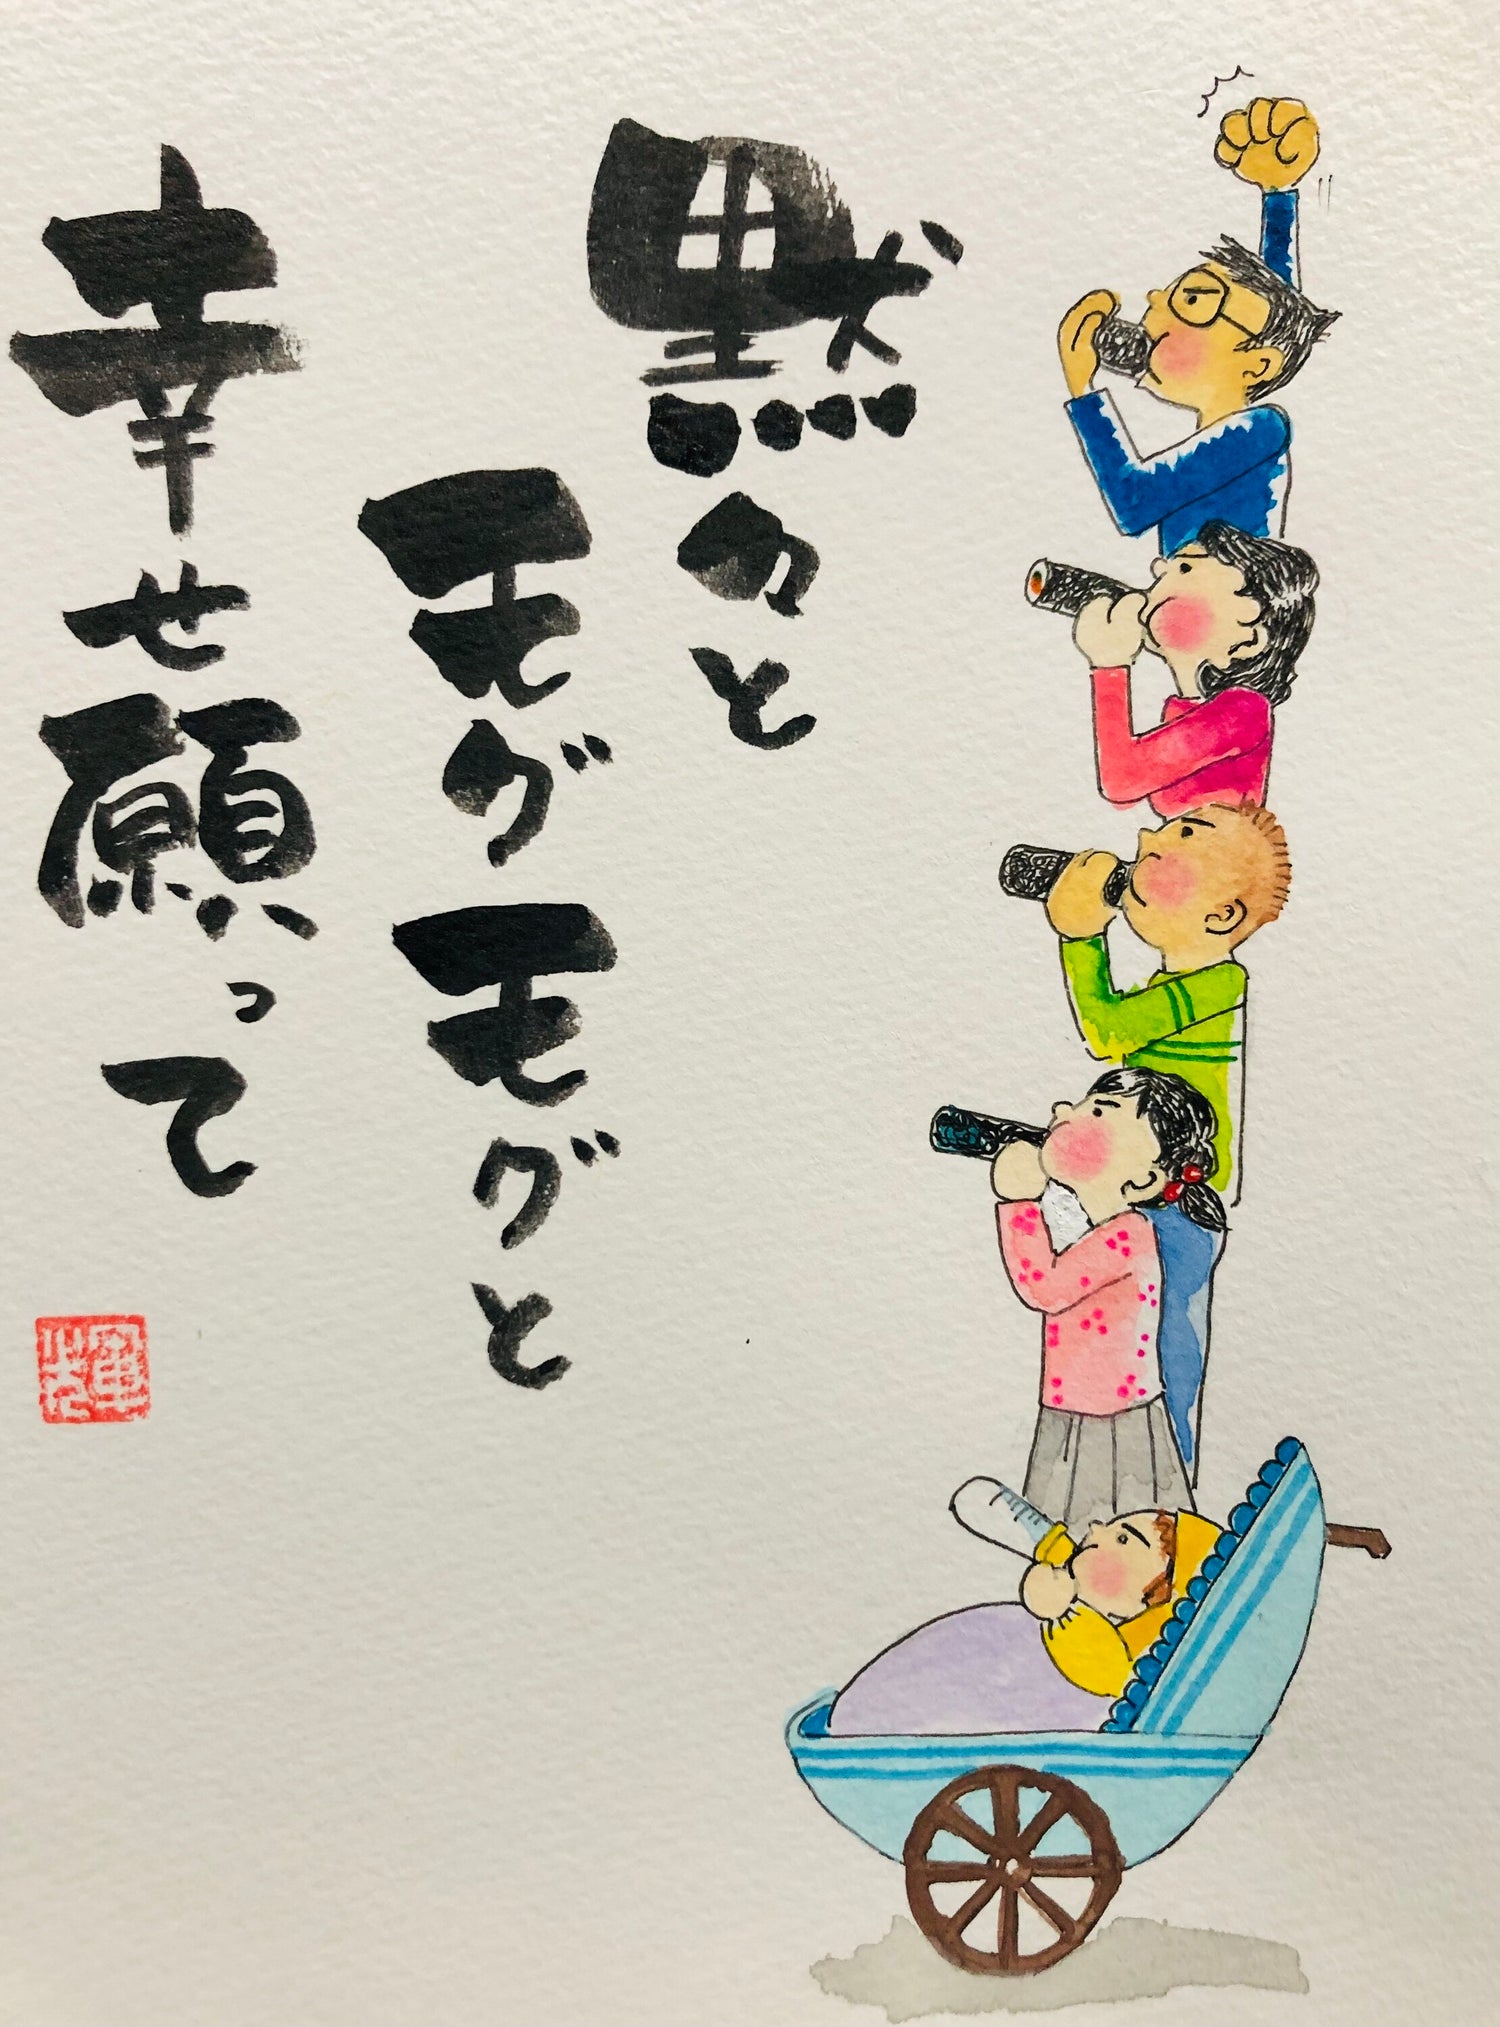 黙々と
モグモグと
幸せ願って